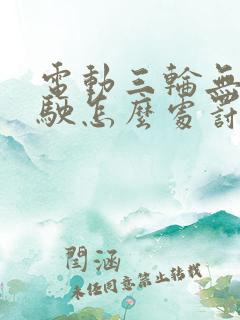 電動三輪無
駛怎麼處討
閆涵
未任同意禁止轉載